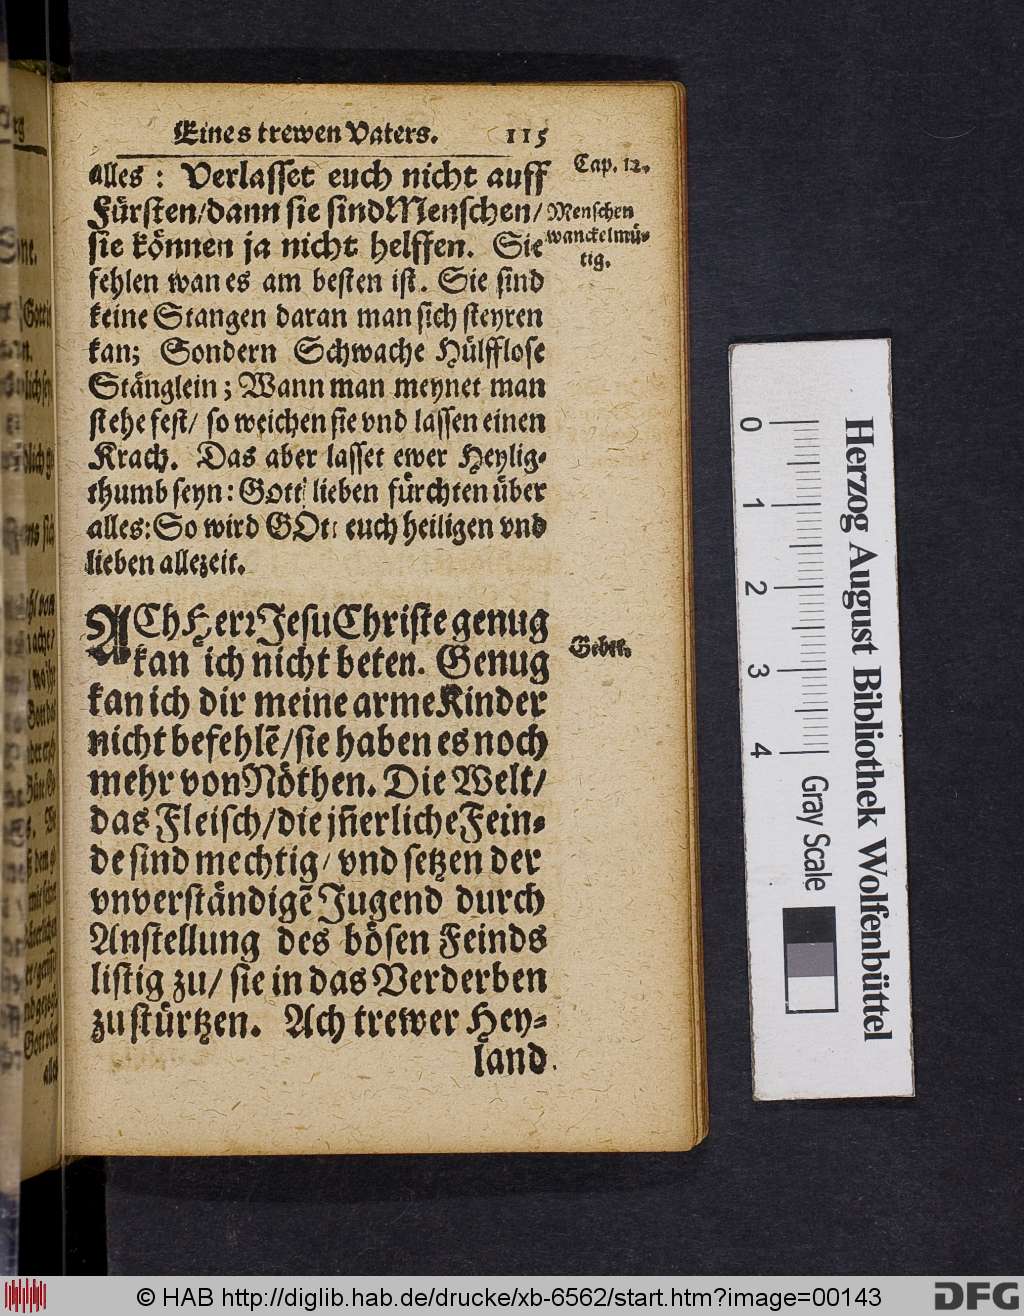 Eines trewen Vaters. 115
alles: Verlasset euch nicht auff
Fürsten/dann sie sind Menschen/
sie können ja nicht helffen. Sie
fehlen wan es am besten ist. Sie sind
keine Stangen daran man sich steyren
kan; Sondern Schwache Hülfflose
Stänglein; Wann man meynet man
stehe fest/ so weichen sie vnd lassen einen
Krach. Das aber lasset ewer Heylig-
thumb seyn: Gott lieben fürchten über
alles: So wird GOtt euch heiligen vnd
lieben allezeit.
Cap. 12.
Menschen
wanckelmü-
tig.
ACh Herr Jesu Christe genug
kan ich nicht beten. Genug
kan ich dir meine arme Kinder
nicht befehlē/sie haben es noch
mehr von Nöthen. Die Welt/
das Fleisch/die jñerliche Fein-
de sind mechtig/ vnd setzen der
vnverständigē Jugend durch
Anstellung des bösen Feinds
listig zu/ sie in das Verderben
zu stürtzen. Ach trewer Hey-
land
Gebet.
0 1 2 3 4
Gray Scale
Herzog August Bibliothek Wolfenbüttel
© HAB http://diglib.hab.de/drucke/xb-6562/start.htm?image=00143
DFG